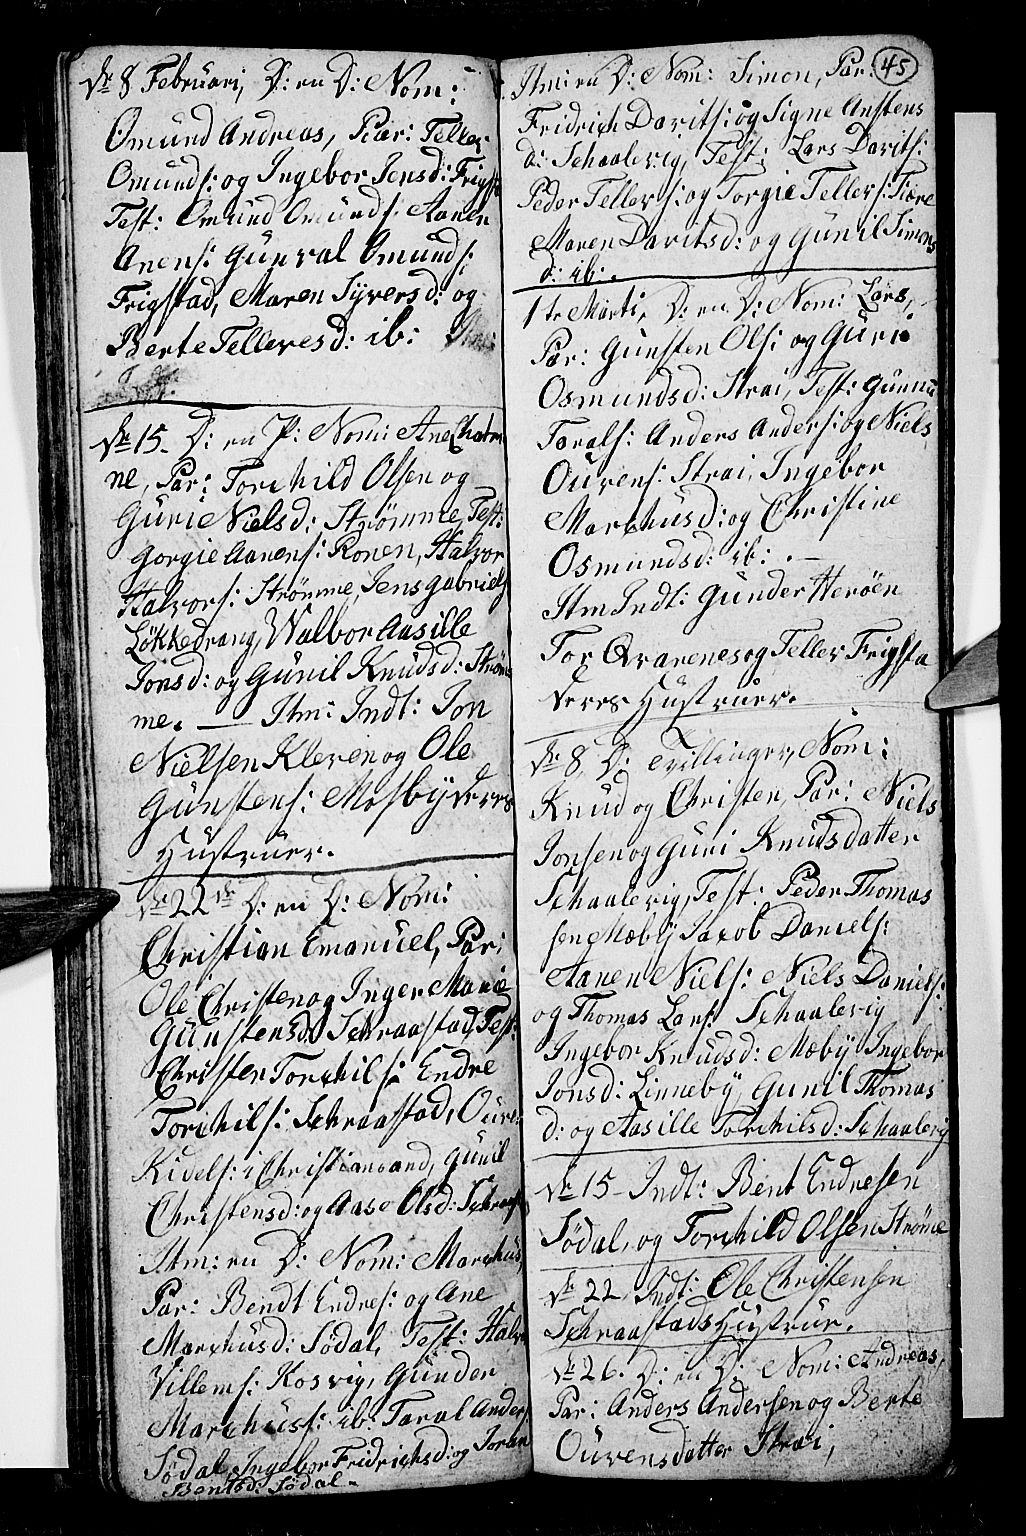 d. 8 Februari, D: en D: Nom:
Omund Andreas, Par: Teller
Omunds: og Ingebor Jensd: Frigst
Test: Omund Omunds: Aanen
Anens: Gunval Omunds:
Frigstad, Maren Syversd: og
Berte Telleresd: ib:
d. 15. D: en P: Nom: Ane Chatri
ne, Par: Torchild Olsen og
Gurie Nielsd: Strømme, Test:
Gorgie Aanens: Ronen, Halvor
Halvors: Strømme, Jens Gabriels
Løkkedrang, Walbor Aasille
Jonsd: og Gunil Knudsd: Strøm
me. — Itm: Indt: Jon
Nielsen Kleven og Ole
Gunstens: Mosby deres
Hustruer.
d. 22 D: en D: Nom:
Christian Emanuel, Par:
Ole Christen og Inger Marie
Gunstensd: Schraastad, Test:
Christen Torchils: Endre
Torchils: Schraastad, Ouven
Kidels: i Christiansand, Gunil
Christensd: og Aase Olsd: Schraast
Itm: en D: Nom: Marchus,
Par: Bendt Endres: og Ane
Marchusd: Sødal, Test: Halvo
Villems: Kosvig, Gunder
Marchuss: ib: Taral Anders
Sødal, Ingebor Fridrichsd: og Joran
Bentsd: Sødal.
45
Itm: en D: Nom: Simon, Par:
Fridrich Davits: og Signe Anstens
d: Schaalevig, Test: Lars Davits:
Peder Tellers: og Torgie Tellers: Tiøre
Maren Davitsd: og Gunil Simons
d: ib:.
1te Marti, D: en D: Nom: Lars,
Par: Gunsten Ols: og Guri
Osmundsd: Strai, Test: Gunnu
Torals: Anders Anders: og Niels
Ouvens: Strai, Ingebor
Marchusd: og Christine
Osmundsd: ib:. —
Itm Indt: Gunder Herøen
Tor Qvarenes og Teller Frigsta
deres Hustruer.
d. 8, D: Tvillinger, Nom:
Knud og Christen, Par: Niels
Jonsen og Guri Knudsdatter
Schaalevig, Test: Peder Thomas
sen Mæby Jacob Daniels:
Aanen Niels: Niels Daniels:
og Thomas Lars: Schaalevig
Ingebor Knudsd: Mæby Ingebor
Jonsd: Linneby, Gunil Thomas
d: og Aasille Torchilsd: Schaalevig
d. 15 – Indt: Bent Endresen
Sødal, og Torchild Olsen Strøme
d. 22, Indt: Ole Christensen
Schraastads Hustrue.
d. 26. D: en D: Nom: Andreas,
Par: Anders Andersen og Berte
Ouvensdatter Strai,